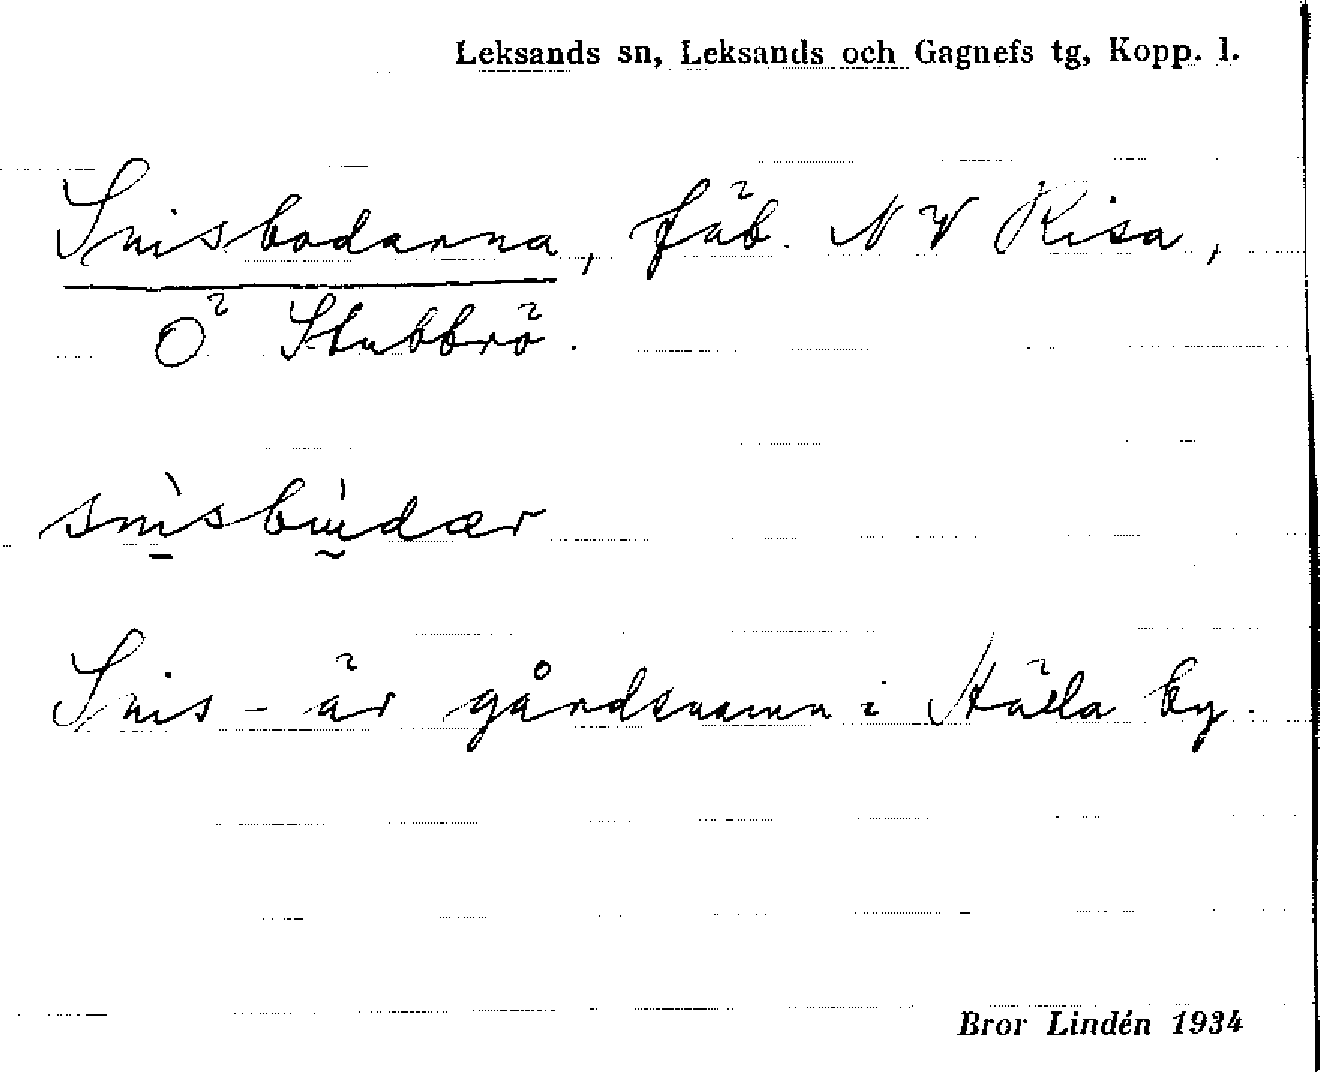 Leksands sn, Leksands och Gagnefs tg, Kopp. l.
Snisbodarna, fäb. NV Risa,
Ö Stubbrö.
Snis- är gårdsnamn i Hälla by.
Bror Lindén 1934